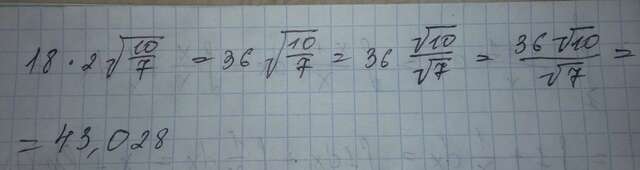 18 · 2 √(10/7) = 36 √(10/7) = 36 √10/√7 = 36√10/√7 =
= 43,028